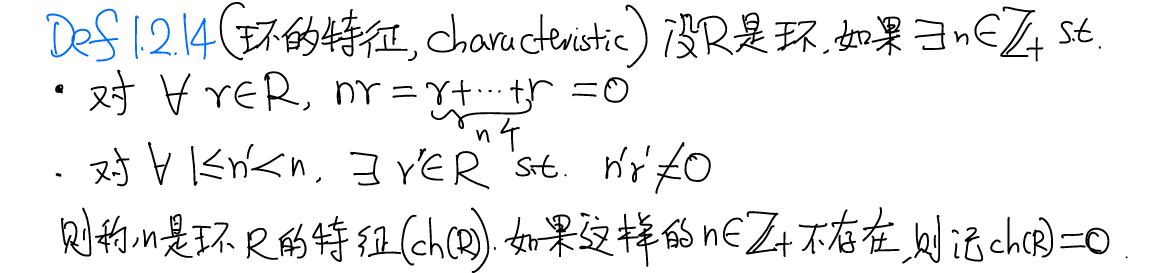 Def 1.2.14(环的特征, characteristic) 设R是环.如果∃n∈ℤ₊ s.t.
• 对 ∀ r∈R, nr = r+⋯+r = 0
n个
• 对 ∀ 1≤n'<n, ∃ r'∈R s.t. n'r'≠0
则称n是环R的特征(ch(R)).如果这样的n∈ℤ₊不存在,则记ch(R)=0.